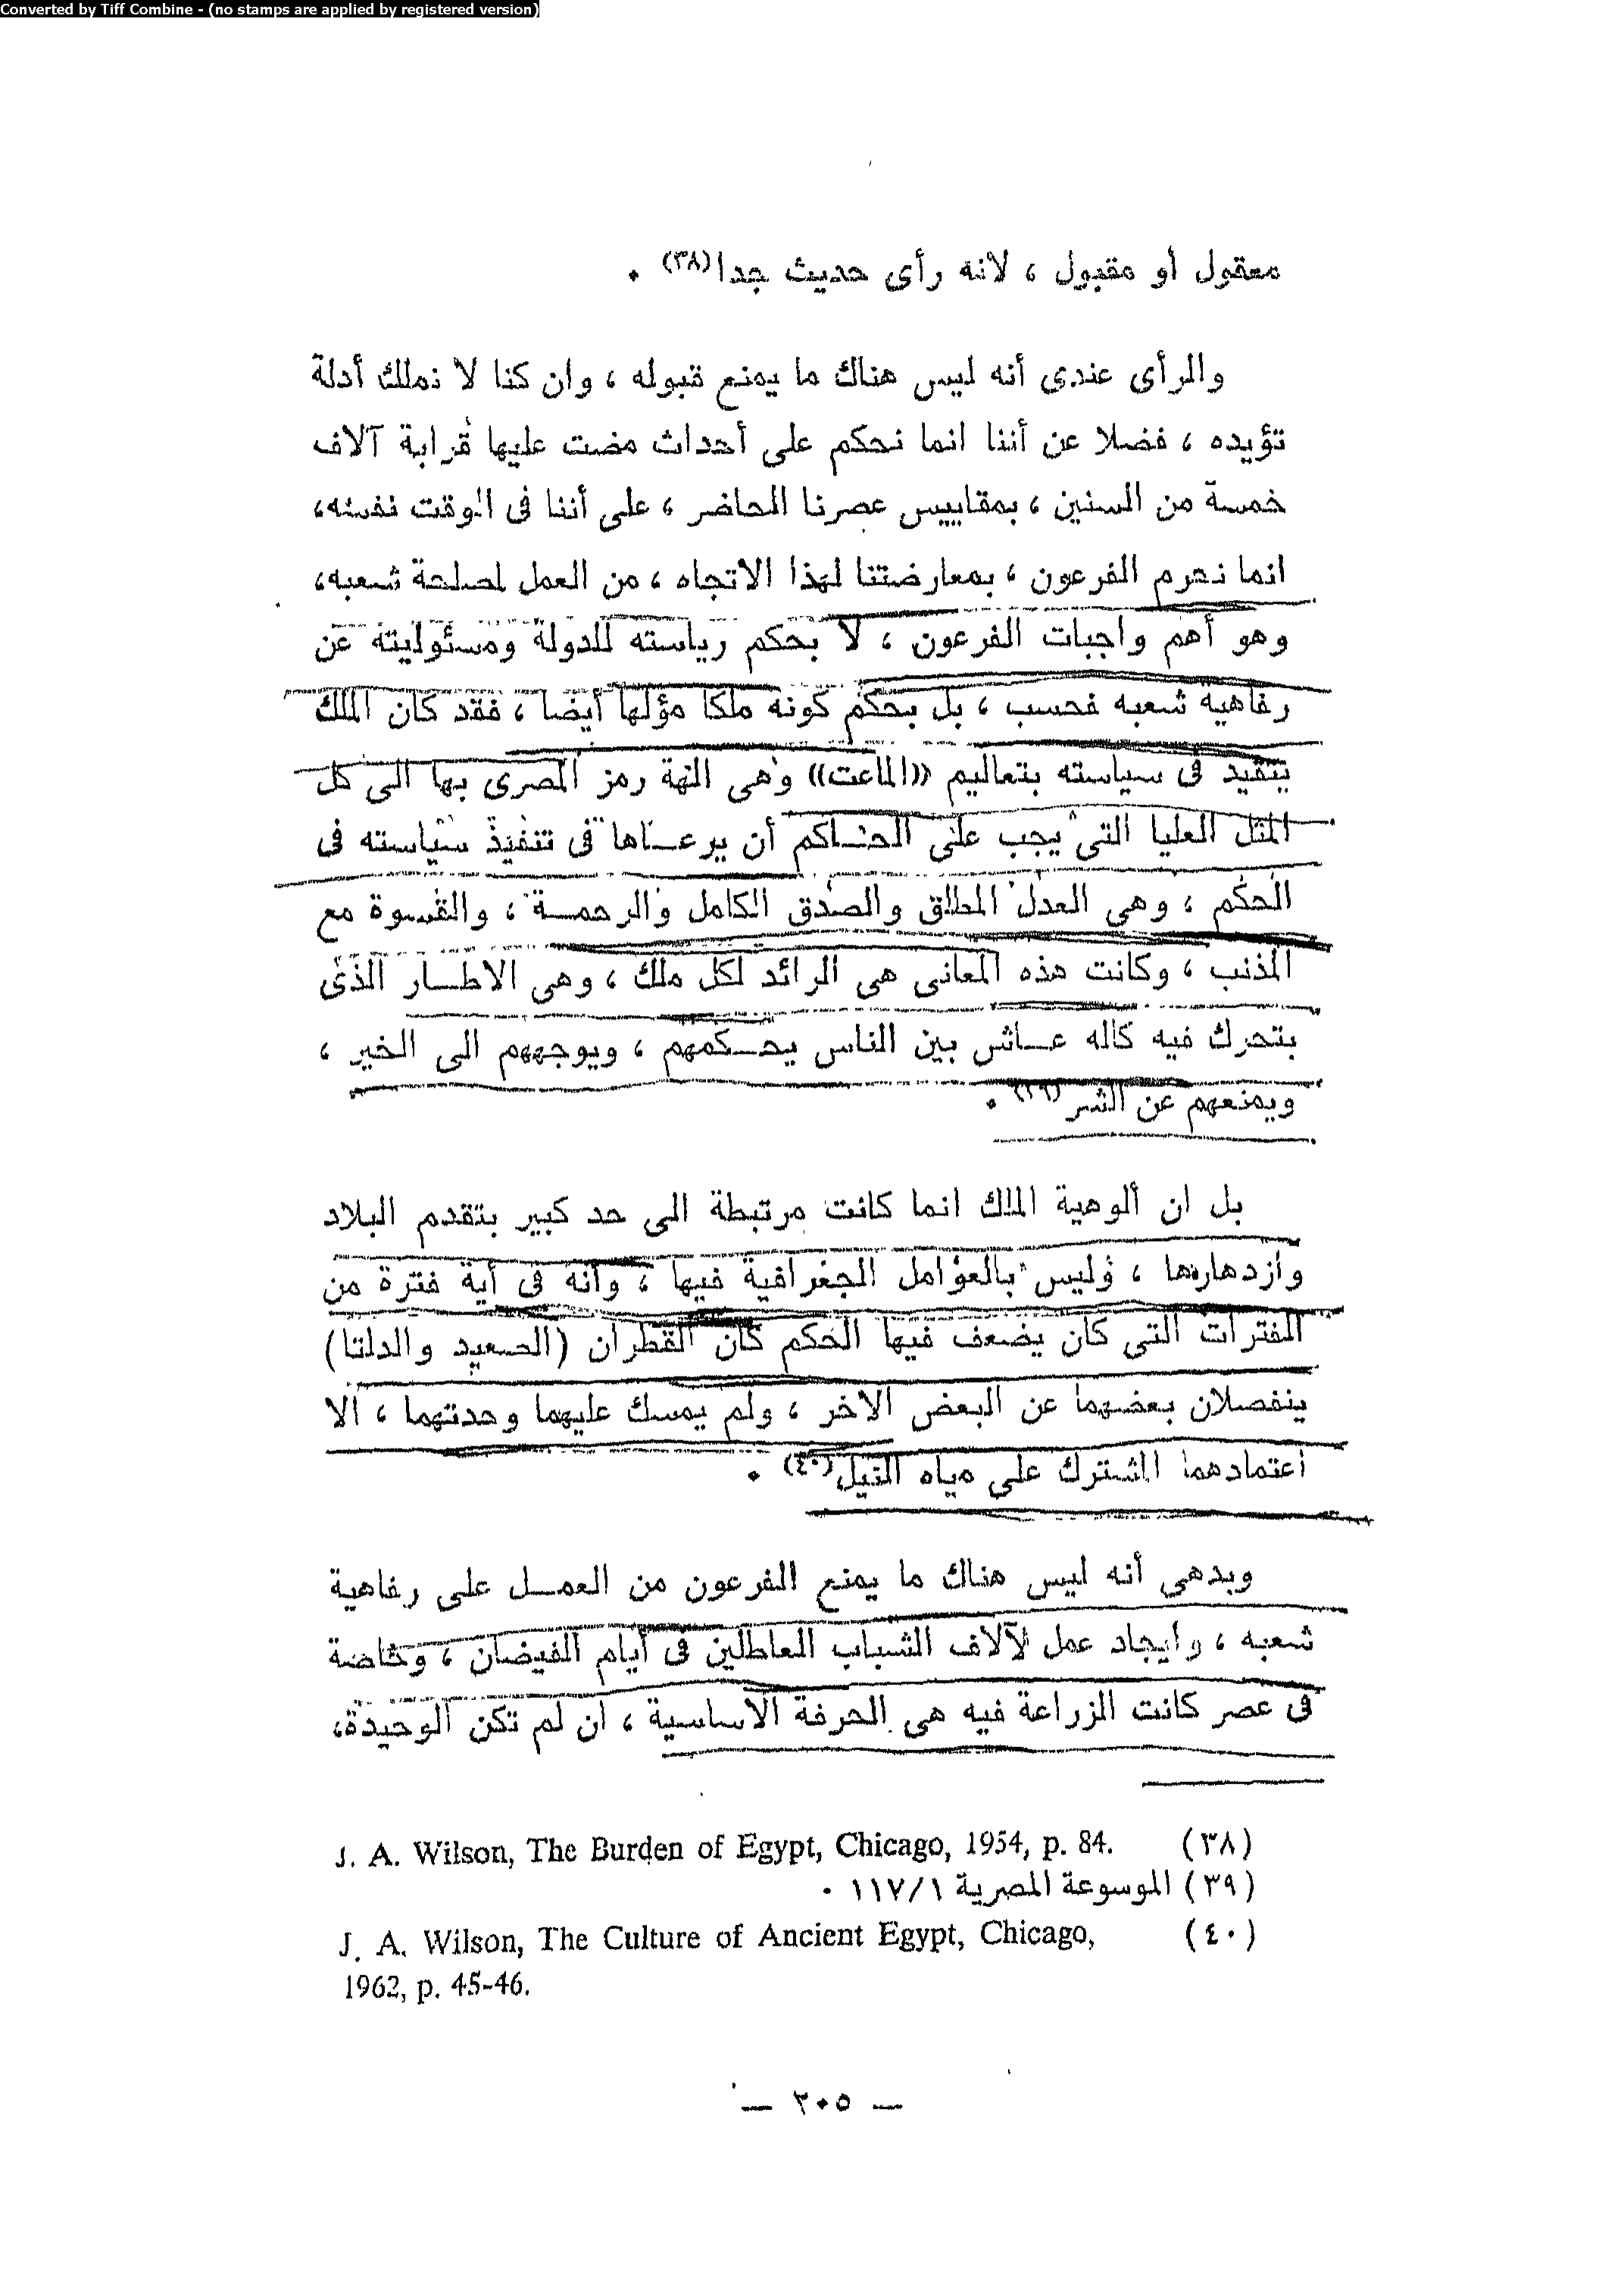 Converted by Tiff Combine - (no stamps are applied by registered version)
معقول أو مقبول ، لانه رأى حديث جدا(٣٨) •
والرأى عندى أنه ليس هناك ما يمنع قبوله ، وان كنا لا نملك أدلة
تؤيده ، فضلا عن أننا انما نحكم على أحداث مضت عليها قرابة آلاف
خمسة من السنين ، بمقاييس عصرنا الحاضر ، على أننا فى الوقت نفسه،
انما نحرم الفرعون ، بمعارضتنا لهذا الاتجاه ، من العمل لمصلحة شعبه،
وهو أهم واجبات الفرعون ، لا بحكم رياسته للدولة ومسئوليته عن
رفاهية شعبه فحسب ، بل بحكم كونه ملكا مؤلها أيضا ، فقد كان الملك
يتقيد فى سياسته بتعاليم ((الماعت)) وهى الهة رمز المصرى بها الى كل
المثل العليا التى يجب على الحاكم أن يرعاها فى تنفيذ سياسته فى
الحكم ، وهى العدل المطلق والصدق الكامل والرحمة ، والقسوة مع
المذنب ، وكانت هذه المعانى هى الرائد لكل ملك ، وهى الاطار الذى
يتحرك فيه كاله عاش بين الناس يحكمهم ، ويوجههم الى الخير ،
ويمنعهم عن الشر(٣٩) •
بل ان ألوهية الملك انما كانت مرتبطة الى حد كبير بتقدم البلاد
وازدهارها ، وليس بالعوامل الجغرافية فيها ، وأنه فى أية فترة من
الفترات التى كان يضعف فيها الحكم كان القطران (الصعيد والدلتا)
ينفصلان بعضهما عن البعض الاخر ، ولم يمسك عليهما وحدتهما ، الا
اعتمادهما المشترك على مياه النيل(٤٠) •
وبدهى أنه ليس هناك ما يمنع الفرعون من العمل على رفاهية
شعبه ، وايجاد عمل لآلاف الشباب العاطلين فى أيام الفيضان ، وخاصة
فى عصر كانت الزراعة فيه هى الحرفة الاساسية ، ان لم تكن الوحيدة،
(٣٨) J. A. Wilson, The Burden of Egypt, Chicago, 1954, p. 84.
(٣٩) الموسوعة المصرية ١١٧/١ •
(٤٠) J. A. Wilson, The Culture of Ancient Egypt, Chicago,
1962, p. 45-46.
— ٢٠٥ —